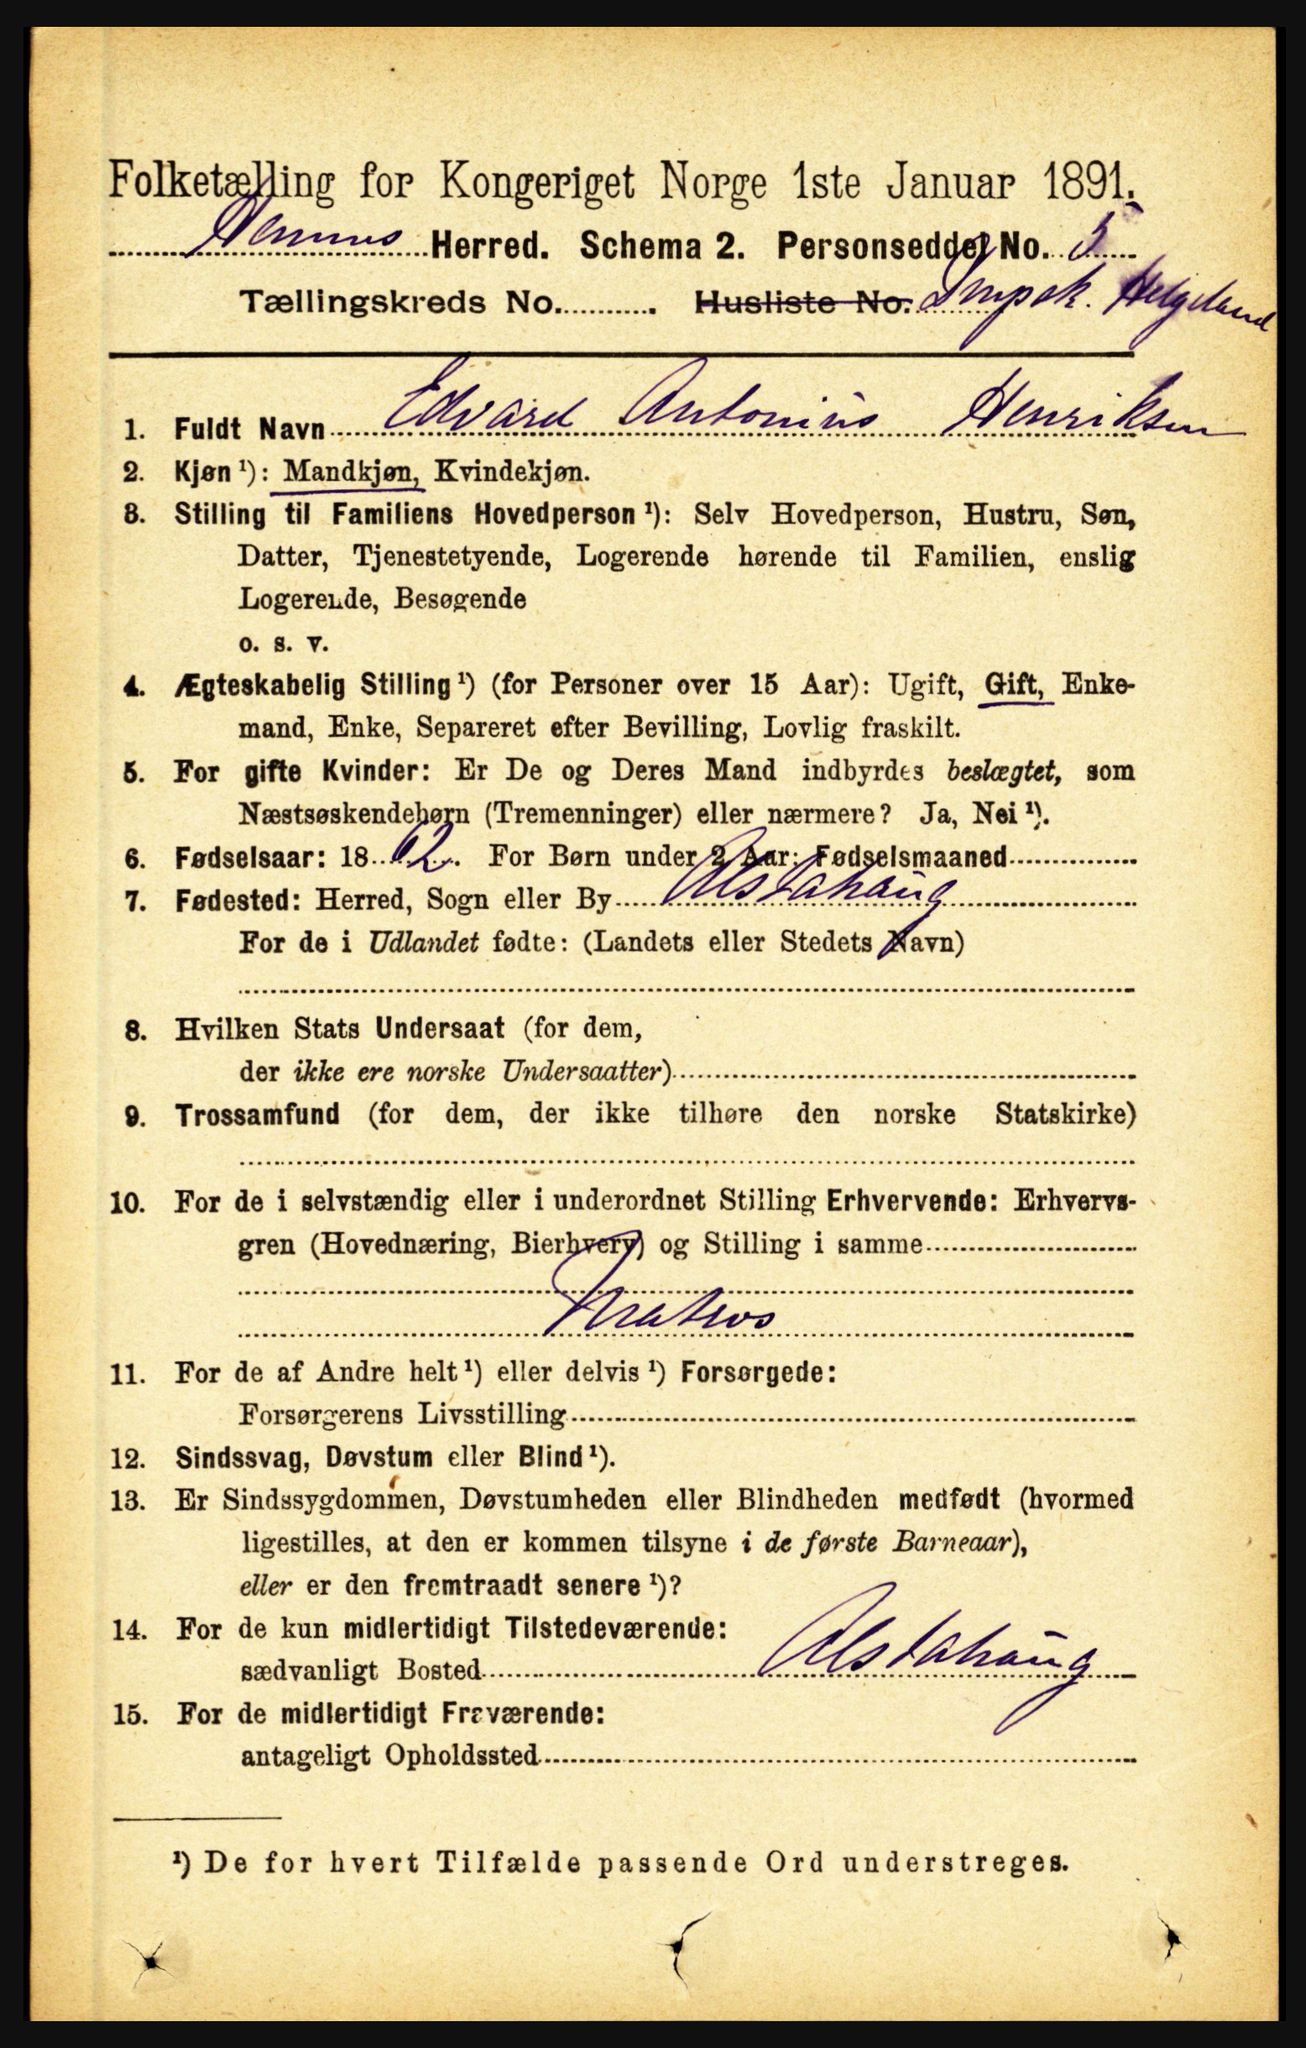 Folketælling for Kongeriget Norge 1ste Januar 1891.
Nemnes Herred. Schema 2. Personseddel No. 5
Tællingskreds No. Husliste No. Dmpsk. Helgeland
1. Fuldt Navn Edvard Antonius Henriksen
2. Kjøn ¹): Mandkjøn, Kvindekjøn.
3. Stilling til Familiens Hovedperson ¹): Selv Hovedperson, Hustru, Søn,
Datter, Tjenestetyende, Logerende hørende til Familien, enslig
Logerende, Besøgende
o. s. v.
4. Ægteskabelig Stilling ¹) (for Personer over 15 Aar): Ugift, Gift, Enke-
mand, Enke, Separeret efter Bevilling, Lovlig fraskilt.
5. For gifte Kvinder: Er De og Deres Mand indbyrdes beslægtet, som
Næstsøskendebørn (Tremenninger) eller nærmere? Ja, Nei ¹).
6. Fødselsaar: 1862. For Børn under 2 Aar: Fødselsmaaned
7. Fødested: Herred, Sogn eller By Alstahaug
For de i Udlandet fødte: (Landets eller Stedets Navn)
8. Hvilken Stats Undersaat (for dem,
der ikke ere norske Undersaatter)
9. Trossamfund (for dem, der ikke tilhøre den norske Statskirke)
10. For de i selvstændig eller i underordnet Stilling Erhvervende: Erhvervs-
gren (Hovednæring, Bierhverv) og Stilling i samme
Matros
11. For de af Andre helt ¹) eller delvis ¹) Forsørgede:
Forsørgerens Livsstilling
12. Sindssvag, Døvstum eller Blind ¹).
13. Er Sindssygdommen, Døvstumheden eller Blindheden medfødt (hvormed
ligestilles, at den er kommen tilsyne i de første Barneaar),
eller er den fremtraadt senere ¹)?
14. For de kun midlertidigt Tilstedeværende:
sædvanligt Bosted Alstahaug
15. For de midlertidigt Fraværende:
antageligt Opholdssted
¹) De for hvert Tilfælde passende Ord understreges.